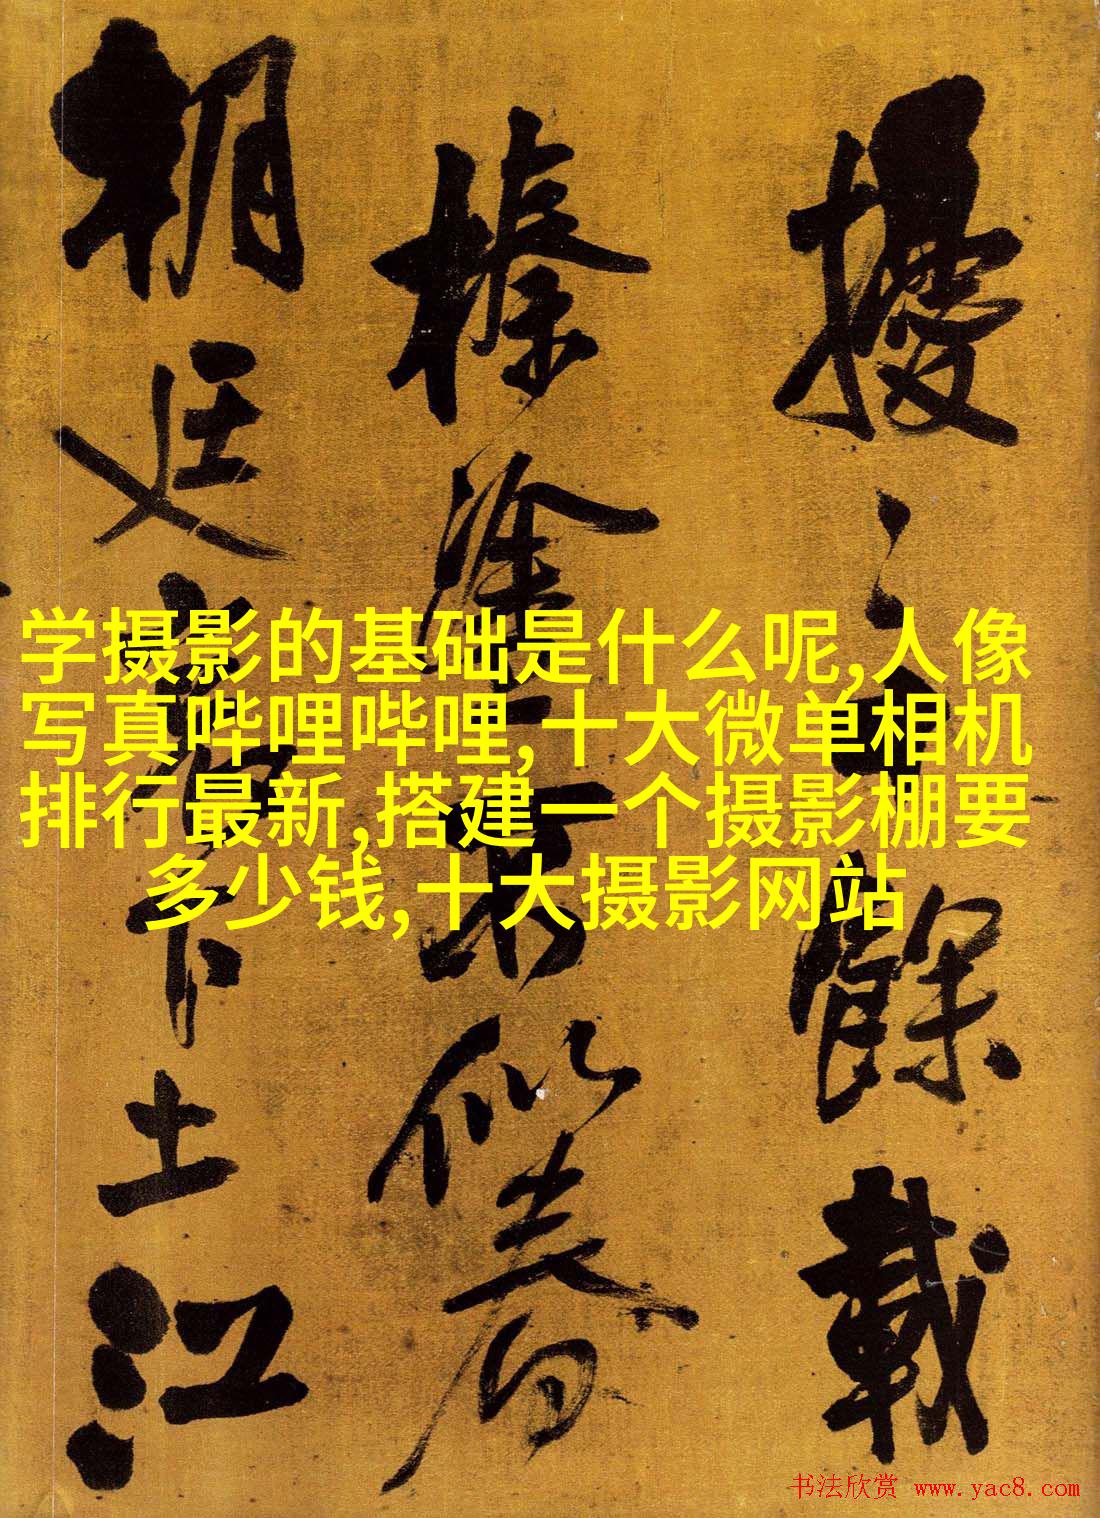 擾之餘載
榛塗似
朝廷下土江
学摄影的基础是什么呢,人像
写真哔哩哔哩,十大微单相机
排行最新,搭建一个摄影棚要
多少钱,十大摄影网站
书法欣赏 www.yac8.com